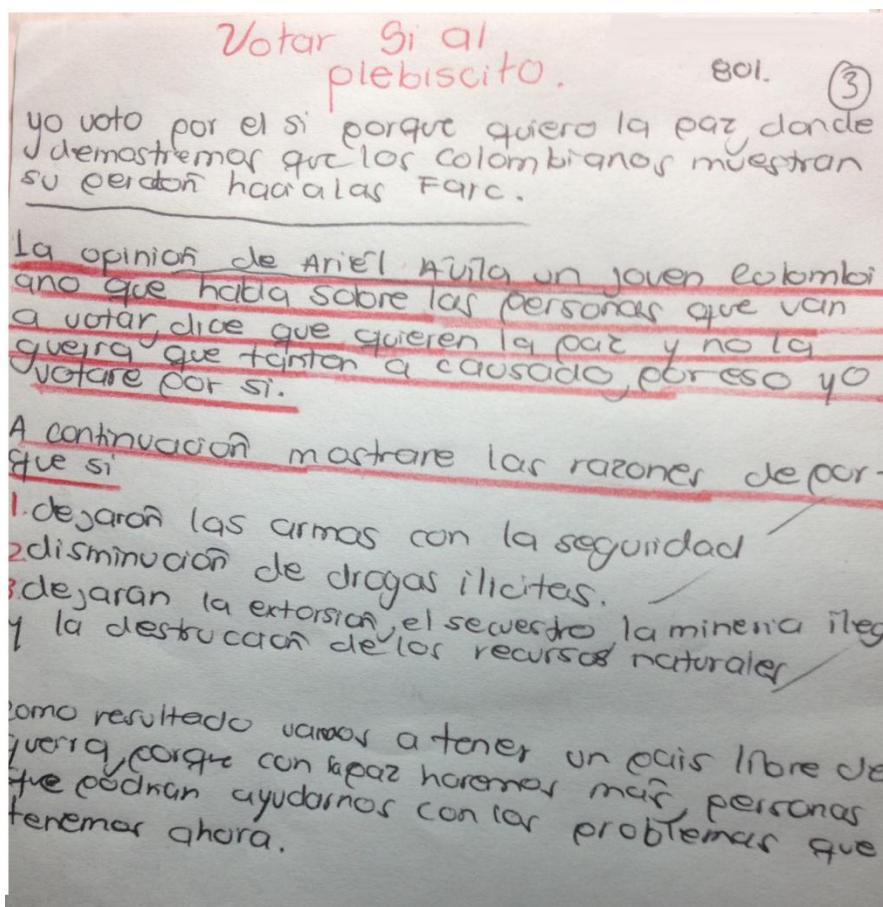 Votar Si al
plebiscito.
801.
3
yo voto por el si porque quiero la paz, donde
demostremos que los colombianos muestran
su perdoñ hacia las Farc.
La opinioñ de Ariel Avila un joven colombi
ano que habla sobre las personas que van
a votar, dice que quieren la paz y no la
guerra que tanton a causado, por eso yo
votare por si.
A continuacioñ mostrare las razones de por-
que si
1. dejaroñ las armas con la seguridad
2. disminucioñ de drogas ilicites.
3. dejaran la extorsioñ, el secuestro, la mineria ileg
y la destruccioñ de los recursos naturales
como resultado vamos a tener un pais libre de
guerra, porque con la paz haremos mas, personas
que podran ayudarnos con los problemas que
tenemos ahora.